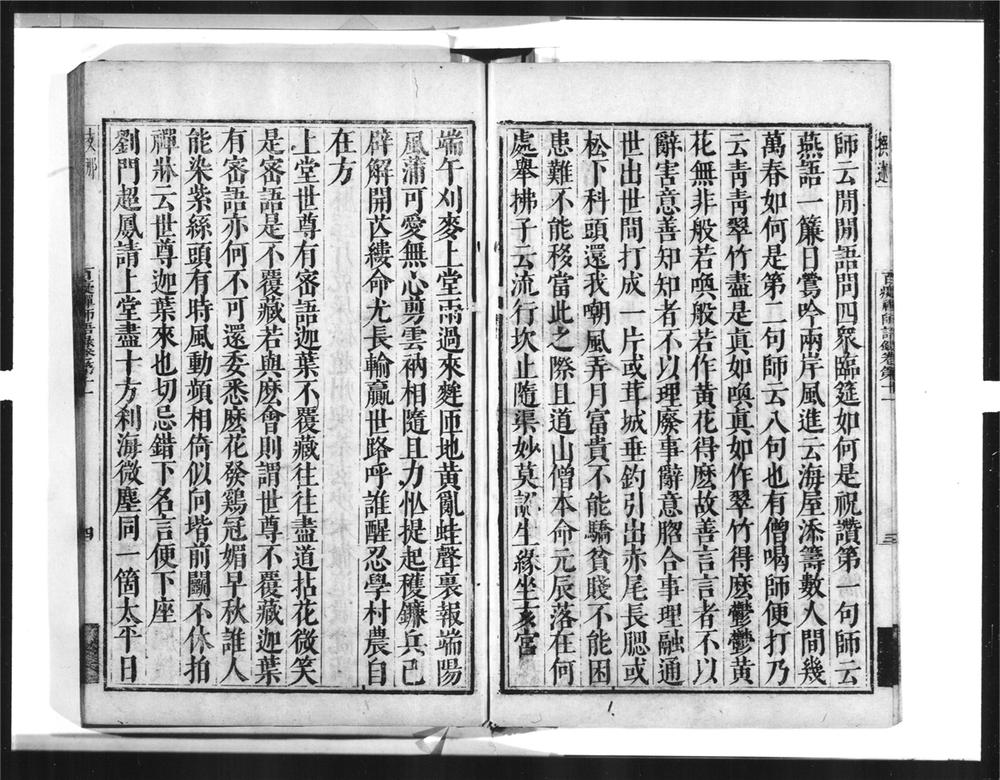 師云閒閒語問四眾臨筵如何是祝讚第一句師云
燕語一簾日鶯吟兩岸風進云海屋添籌數人間幾
萬春如何是第二句師云八句也有僧喝師便打乃
云青青翠竹盡是真如喚真如作翠竹得麼鬱鬱黃
花無非般若喚般若作黃花得麼故善言言者不以
辭害意善知知者不以理廢事辭意脗合事理融通
世出世間打成一片或茸城垂釣引出赤尾長腮或
松下科頭還我嘲風弄月富貴不能驕貧賤不能困
患難不能移當此之際且道山僧本命元辰落在何
處舉拂子云流行坎止隨渠妙莫認生緣坐亥宮
百癡禪師語錄卷第十一
三
端午刈麥上堂雨過來麰匝地黃亂蛙聲裏報端陽
風蒲可愛無心剪雲衲相隨且力㤼提起穫鐮兵已
辟解開苡縷命尤長輸贏世路呼誰醒忍學村農自
在方
上堂世尊有密語迦葉不覆藏往往盡道拈花微笑
是密語是不覆藏若與麼會則謂世尊不覆藏迦葉
有密語亦何不可還委悉麼花發鷄冠媚早秋誰人
能染紫絲頭有時風動頻相倚似向堦前鬬不休拍
禪牀云世尊迦葉來也切忌錯下名言便下座
劉門超鳳請上堂盡十方剎海微塵同一箇太平日
百癡禪師語錄卷第十一
四